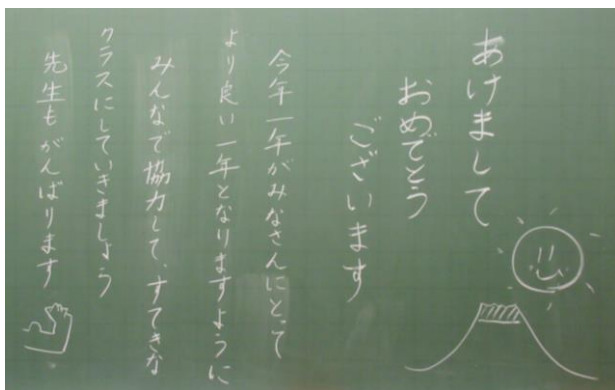 あけまして
おめでとう
ございます
今年一年がみなさんにとって
より良い一年となりますように
みんなで協力して、すてきな
クラスにしていきましょう
先生もがんばります